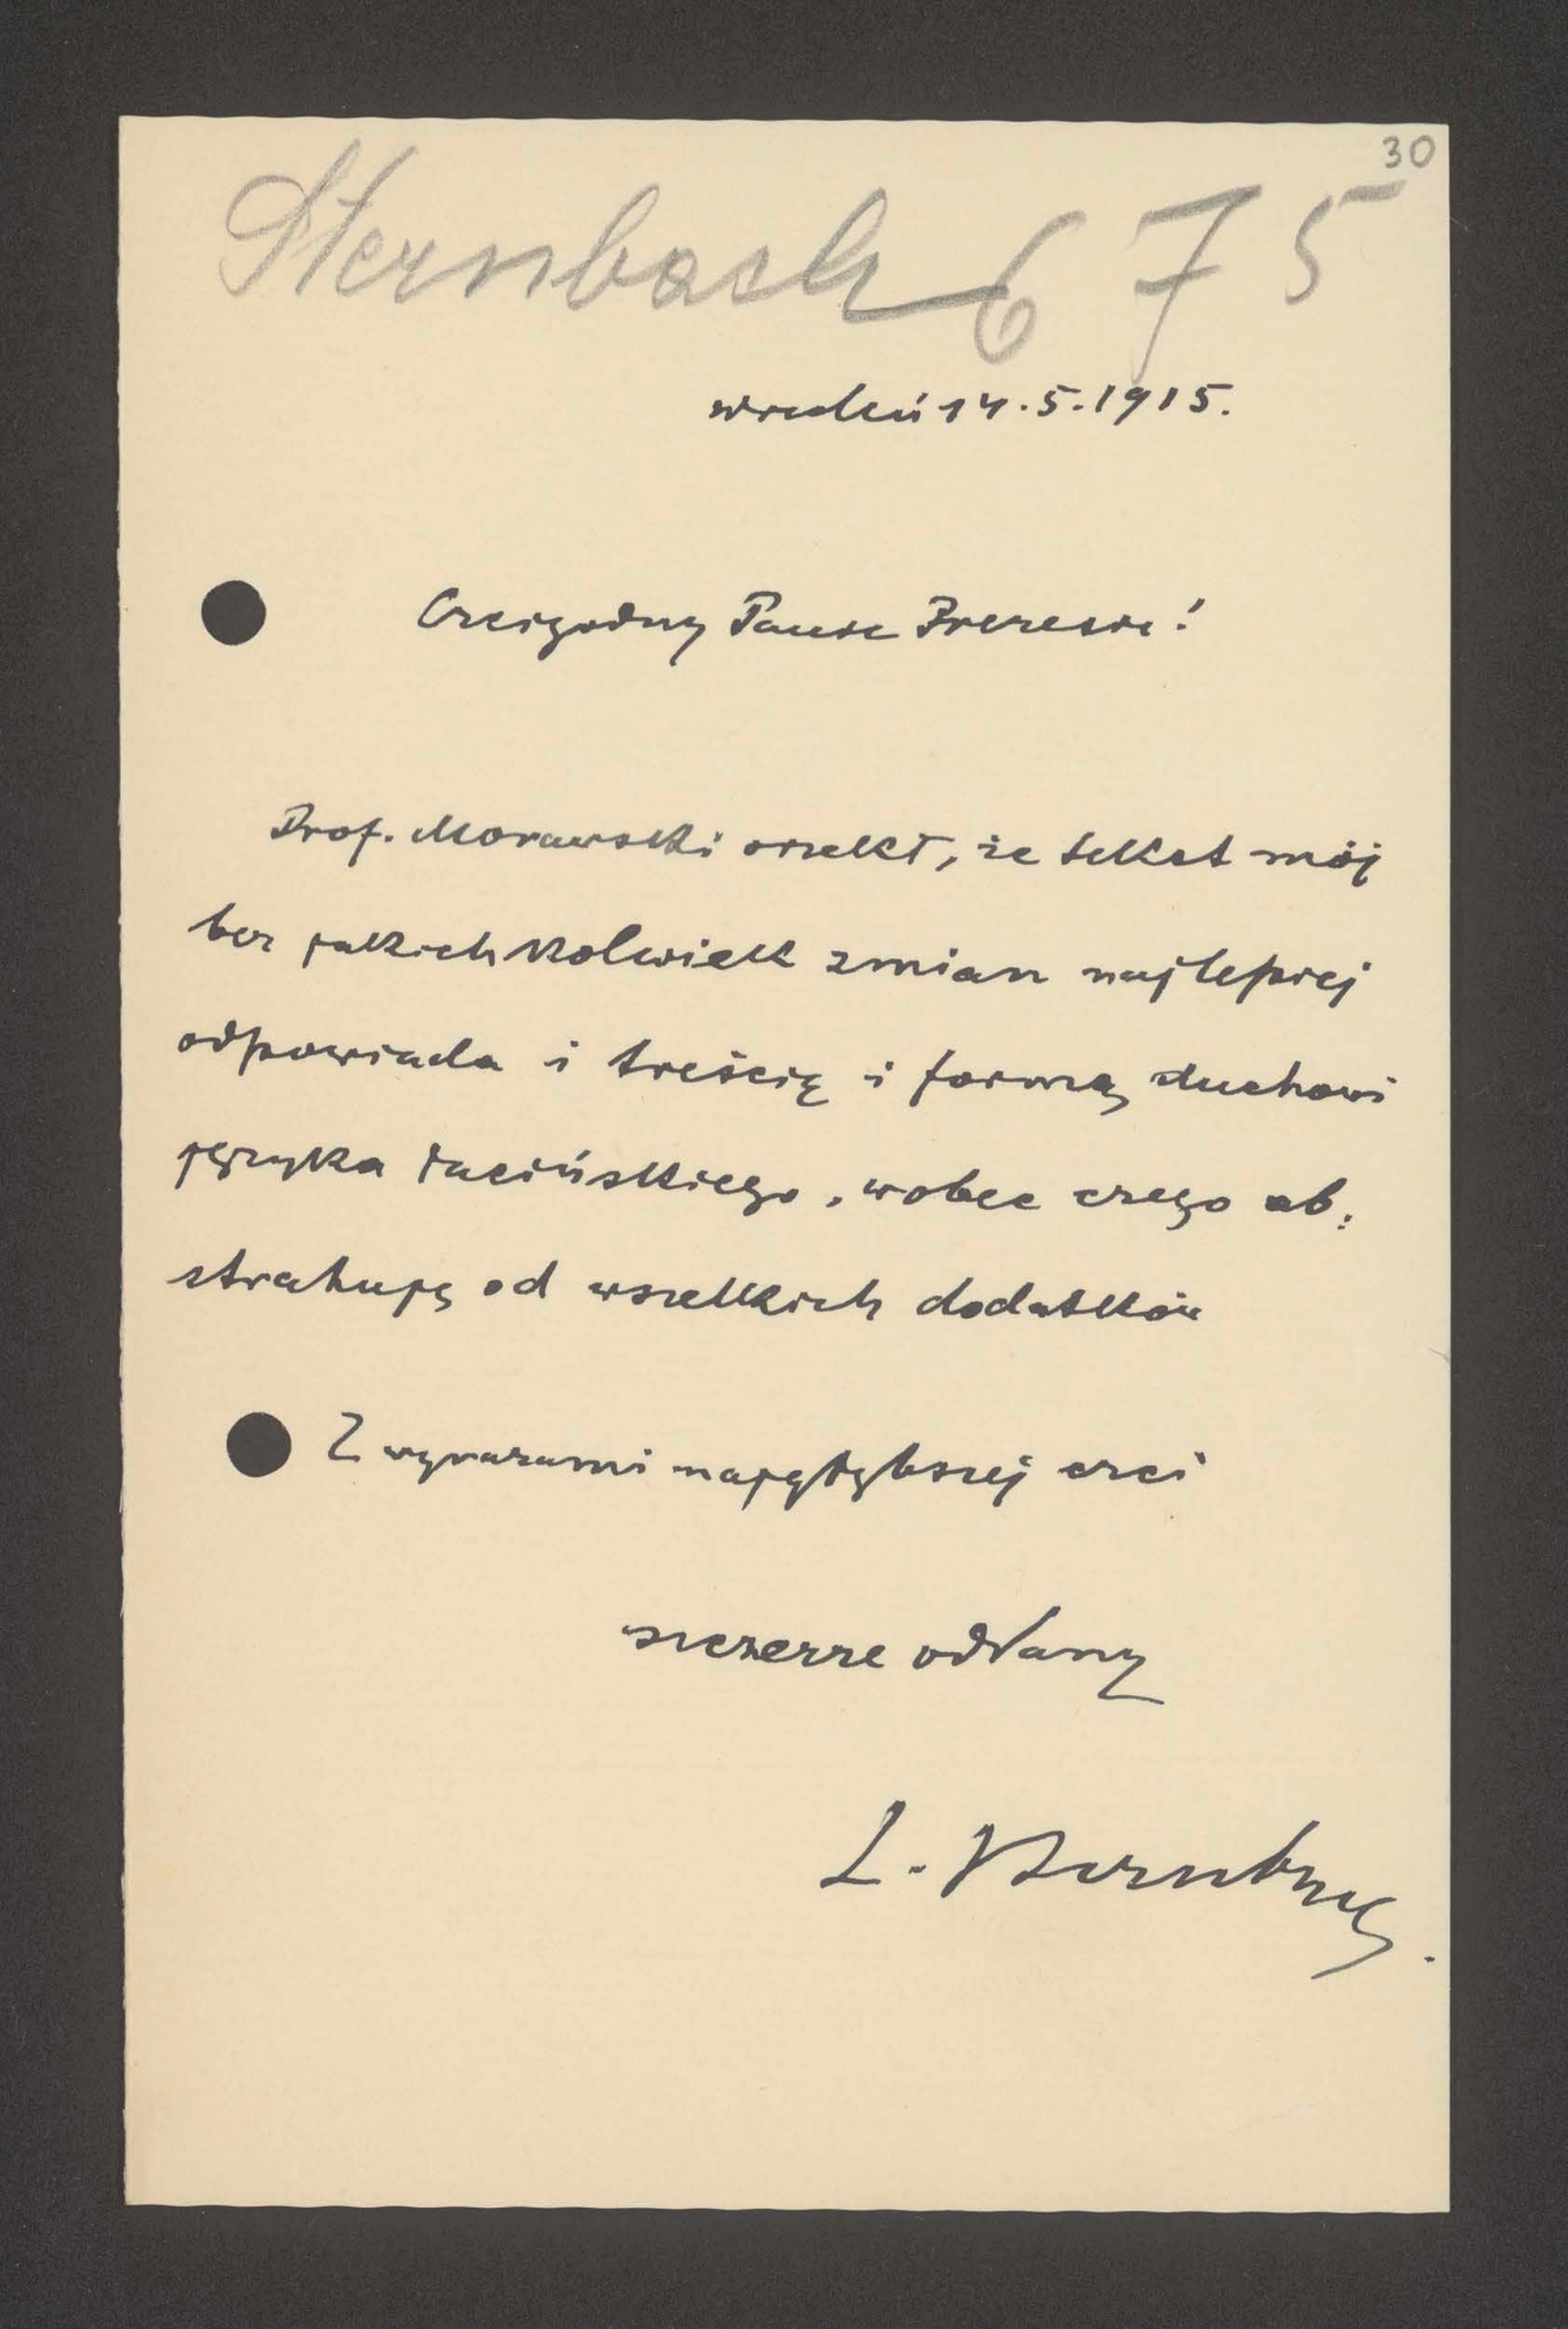 30
Sternbach 675
Wiedeń 14.5.1915.
Czcigodny Panie Prezesie!
Prof. Morawski orzekł, że tekst mój
bez jakichkolwiek zmian najlepiej
odpowiada i treścią i formą duchowi
języka łacińskiego, wobec czego ab:
strahuję od wszelkich dodatków
Z wyrazami najgłębszej czci
szczerze oddany
L. Sternbach.